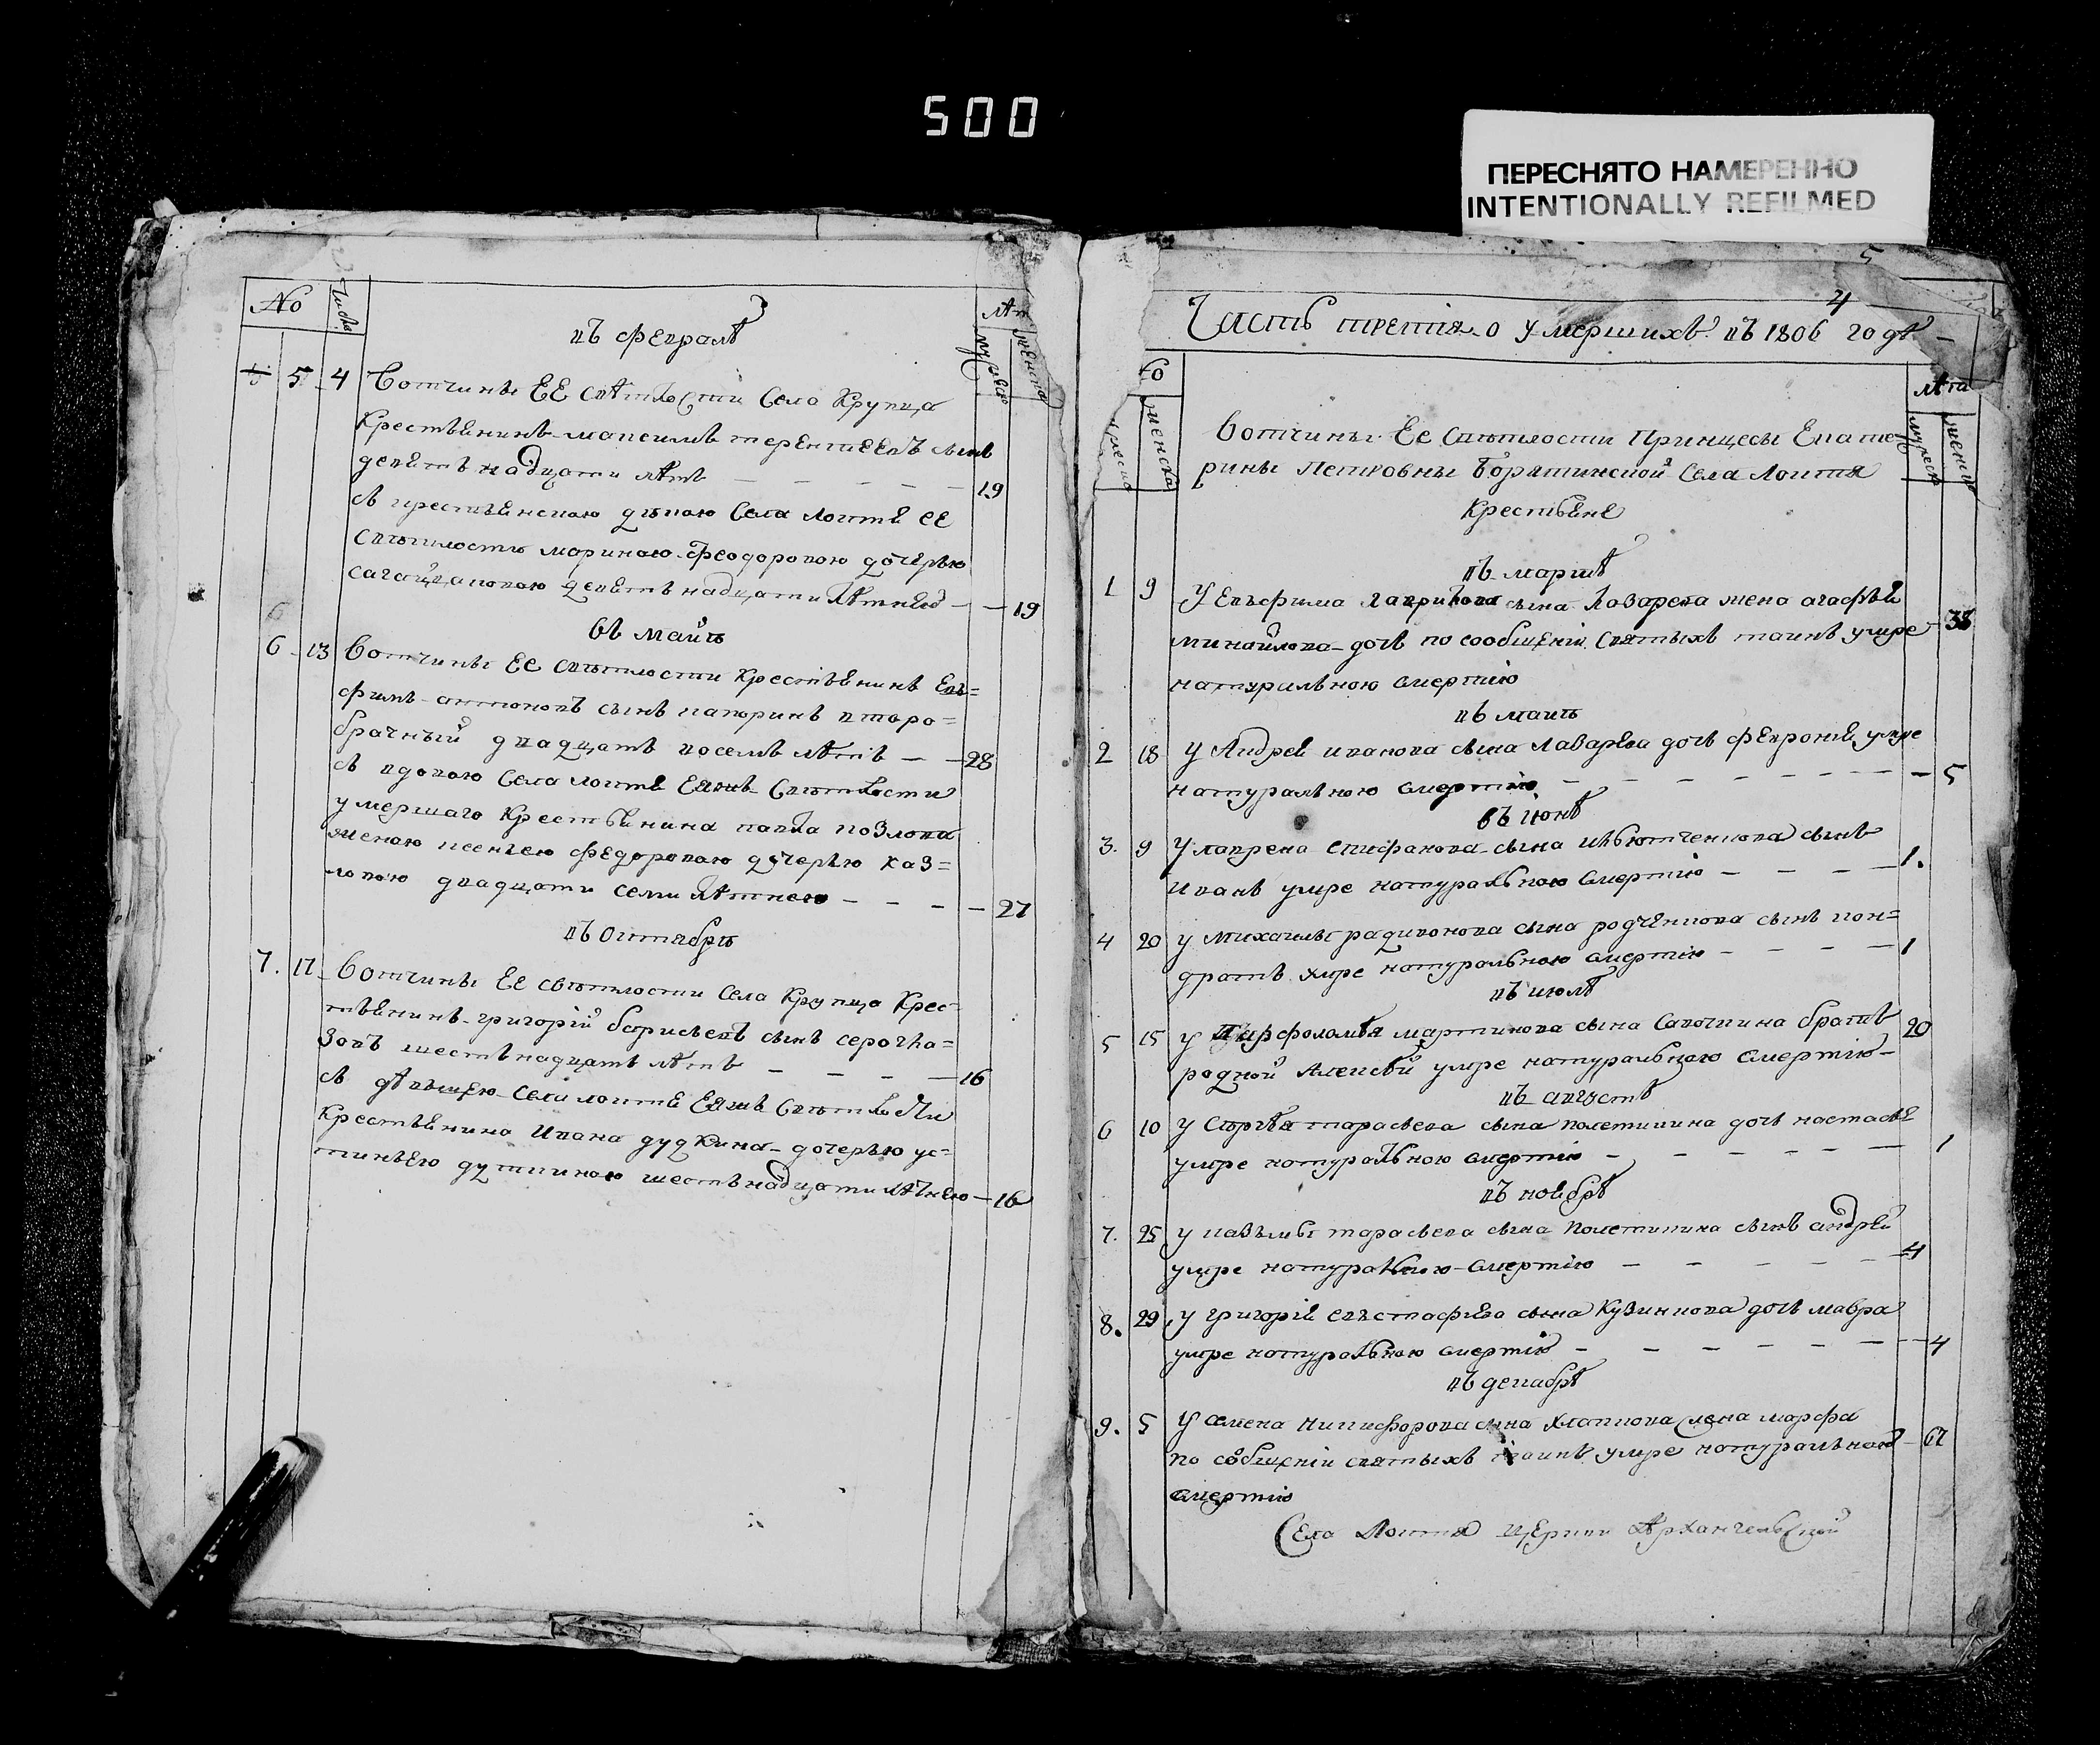 500
ПЕРЕСНЯТО НАМЕРЕННО
INTENTIONALLY REFILMED
No
Число
Лѣт
мужеска
женска
въ февралѣ
5 4 Вотчины ЕЕ свѣтлости Села Крупца
Крестьянинъ максимъ терентиеевъ сынъ
девятьнадцати лѣтъ — — — — — 19
съ крестьянскою девкою Села Локтя ее
свѣтлости мариною феодоровою дочерью
девятьнадцати лѣтнею — — 19
въ маиѣ
6 13 Вотчины Ее свѣтлости Крестьянинъ Евъ=
фимъ антоновъ сынъ второ=
брачный двадцать восемь лѣтъ — — 28
съ вдовою Села Локтя Еяжъ Свѣтлости
умершаго Крестьянина павла козлова
женою ксениею федоровою дочерью каз=
ловою двадцати семи лѣтнею — — — — 27
въ октябрѣ
7. 17 Вотчины Ее свѣтлости Села Крупца Крес=
тьянинъ григорій борисьевъ сынъ
шестьнадцать лѣтъ — — — — 16
съ дѣвицею Села локтя Еяжъ Свѣтлости
Крестьянина Ивана дудкина дочерью ус=
тиньею дуткиною шестьнадцати лѣтнею — 16
5
4
Часть третія о умершихъ въ 1806 годѣ
мужеска
женска
лѣта
мужеск
женск
Вотчины Ее Свѣтлости Принцесы Екате
рины Петровны Борятинской Села Локтя
Крестьяне
въ мартѣ
1 9 У Евъфима гаврилова сына Лазарева жена агафья
михайлова дочь по сообщеніи святыхъ таинъ умре — 38
натуральною смертію
въ маиѣ
2 18 у Андрея иванова сына Лазарева дочь феврония умре
натуральною смертію — — — — — — — — 5
въ іюнѣ
3. 9 у лаврена епифанова сына сынъ
Иванъ умре натуральною смертію — — — — 1.
4 20 у михаилы радивонова сына родченкова сынъ кон=
дратъ умре натуральною смертію — — — — 1
въ июлѣ
5 15 у варфоломѣя мартинова сына братъ 20
родной Алексѣй умре натуральною смертію —
въ августѣ
6 10 у Сергѣя тарасьева сына полетикина дочь настасья
умре натуральною смертію — — — — — — 1
въ ноябрѣ
7. 25 у кавъмы тарасьева сына Полетикина сынъ андрей
умре натуральною смертію — — — — — 4
8. 29 у григорія евъстафьева сына Кузинкова дочь мавра
умре натуральною смертію — — — — — — — 4
въ декабрѣ
9. 5 у семена никифорова сына хлапкова жена марфа
по собщеніи святыхъ таинъ умре натуральною — 67
смертію
Села Локтя церкви Архангельской